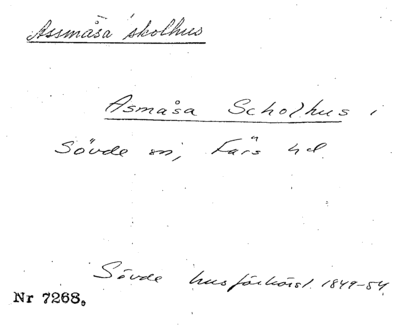 Assmåsa skolhus
Asmåsa Scholhus i
Sövde sn, Färs hd.
Sövde husförhörsl. 1849-54.
Nr 7268.